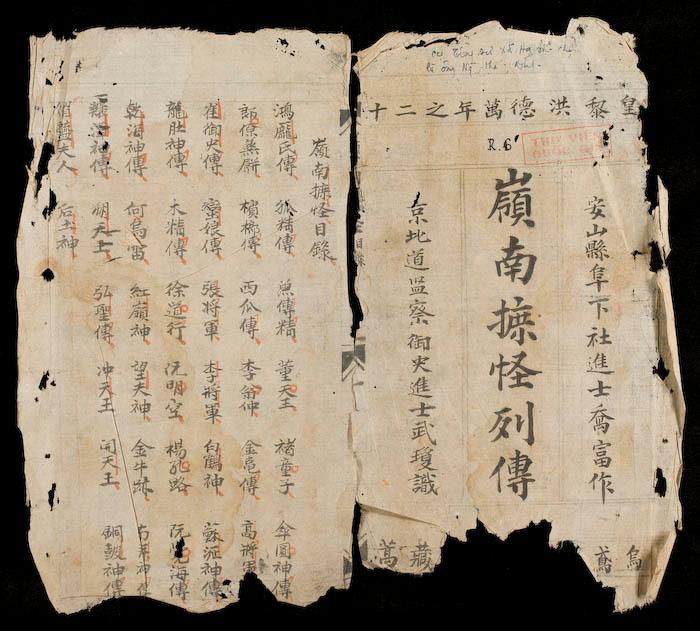 皇黎洪德萬年之二十
R.6
THƯ VIỆN
安山縣阜下社進士喬富作
嶺南摭怪列傳
京北道監察御史進士武瓊識
烏鳶
萬藏
嶺南摭怪目錄
鴻龐氏傳 狐精傳 魚傳精 董天王 褚童子 傘圓神傳
蒸餅 檳榔傳 西瓜傳 李翁仲 金龜傳 高將軍
崔御史傳 蠻娘傳 張將軍 李將軍 白鶴神 蘇瀝神傳
龍肚神傳 木精傳 徐道行 阮明空 楊孔路 阮覺海傳
乾海神傳 何烏雷 紅嶺神 望夫神 金牛跡 神傳
神傳 朔天王 弘聖傳 冲天王 開天王 銅鼓神傳
夫人 后土神